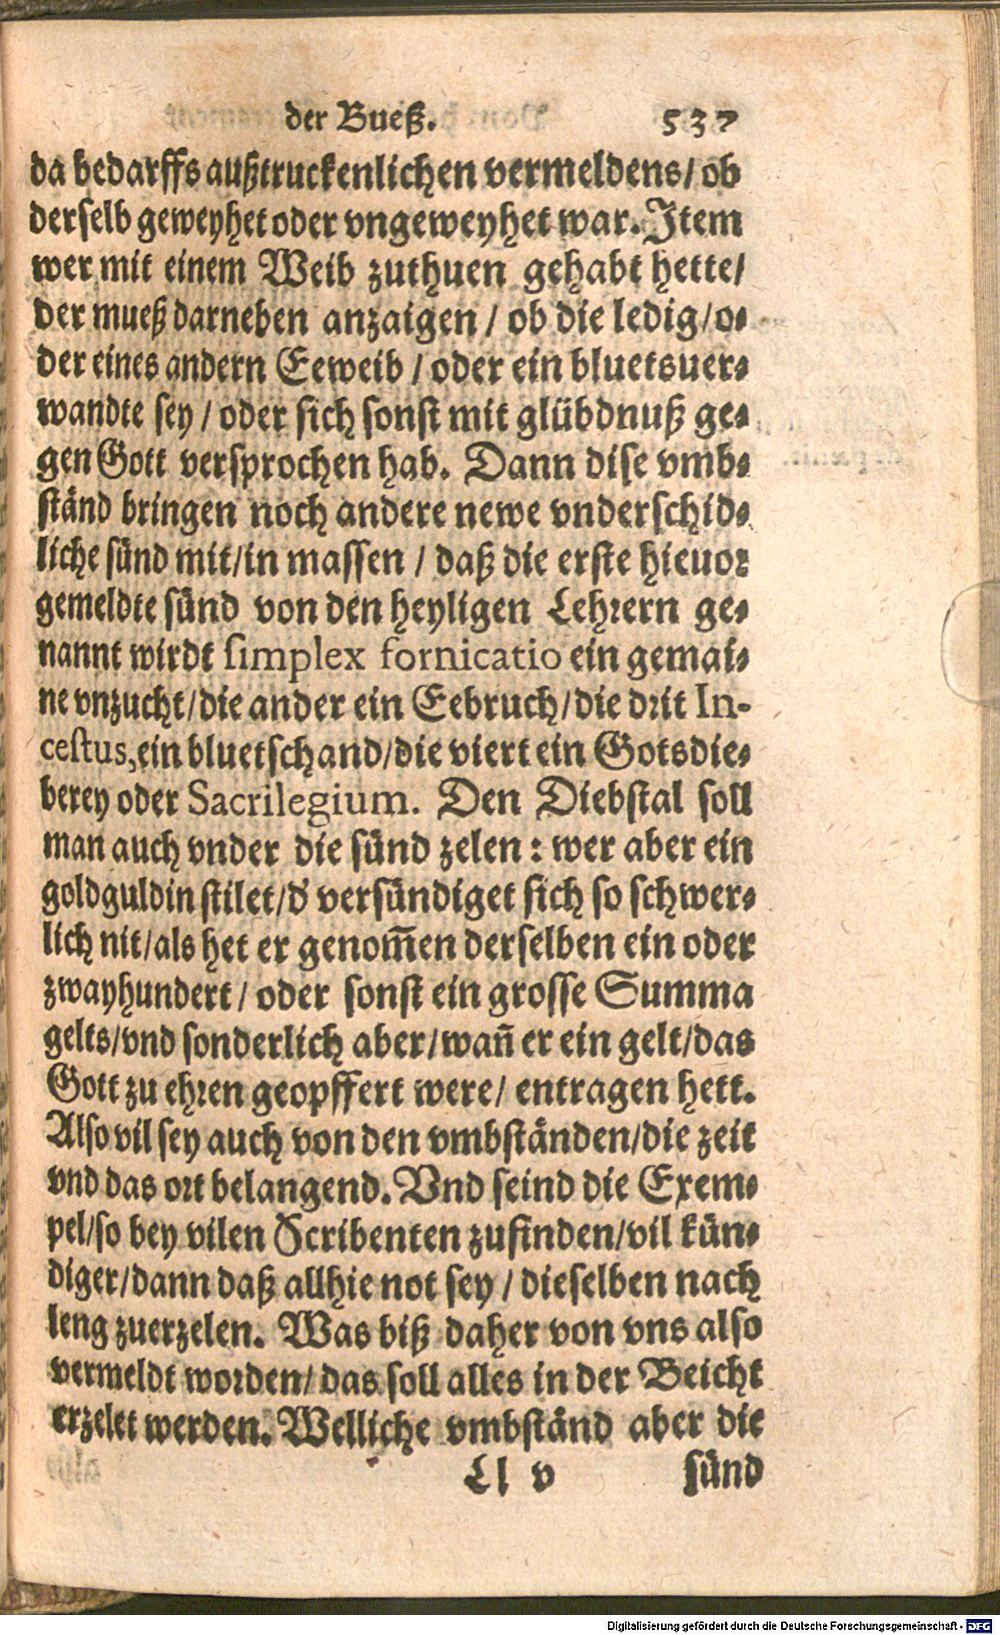 der Bueß. 537
da bedarffs außtruckenlichen vermeldens/ ob
derselb geweyhet oder vngeweyhet war. Item
wer mit einem Weib zuthuen gehabt hette/
der mueß darneben anzaigen / ob die ledig/o⸗
der eines andern Eeweib / oder ein bluetsuer⸗
wandte sey / oder sich sonst mit glübdnuß ge⸗
gen Gott versprochen hab. Dann dise vmb⸗
ständ bringen noch andere newe vnderschid⸗
liche sünd mit/in massen / daß die erste hieuor
gemeldte sünd von den heyligen Lehrern ge⸗
nannt wirdt simplex fornicatio ein gemai⸗
ne vnzucht/die ander ein Eebruch/die drit In-
cestus, ein bluetschand/die viert ein Gotsdie⸗
berey oder Sacrilegium. Den Diebstal soll
man auch vnder die sünd zelen : wer aber ein
goldguldin stilet/d' versündiget sich so schwer⸗
lich nit/als het er genom̄en derselben ein oder
zwayhundert / oder sonst ein grosse Summa
gelts/vnd sonderlich aber/wan̄ er ein gelt/das
Gott zu ehren geopffert were/ entragen hett.
Also vil sey auch von den vmbständen/die zeit
vnd das ort belangend. Vnd seind die Exem⸗
pel/so bey vilen Scribenten zufinden/vil kün⸗
diger/dann daß allhie not sey / dieselben nach
leng zuerzelen. Was biß daher von vns also
vermeldt worden/ das soll alles in der Beicht
erzelet werden. Welliche vmbständ aber die
Ll v sünd
Digitalisierung gefördert durch die Deutsche Forschungsgemeinschaft - DFG